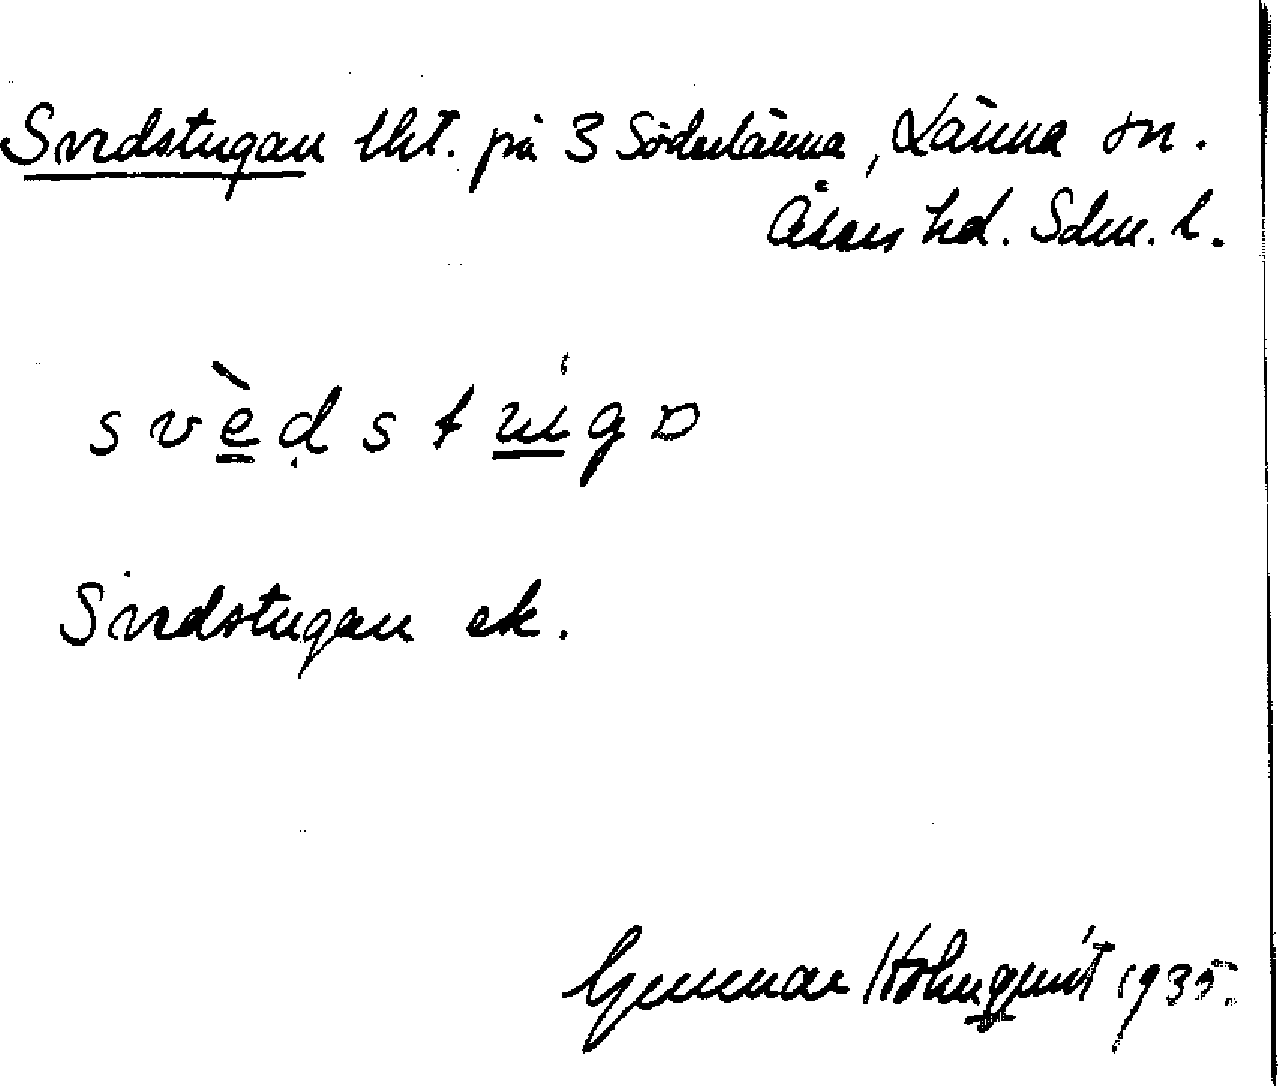 Svedstugan lht. på 3 Söderlänna, Länna sn.
Åkers hd. Sdm. l.
svèdstùgɒ
Svedstugan ek.
Gunnar Holmqvist 1935.